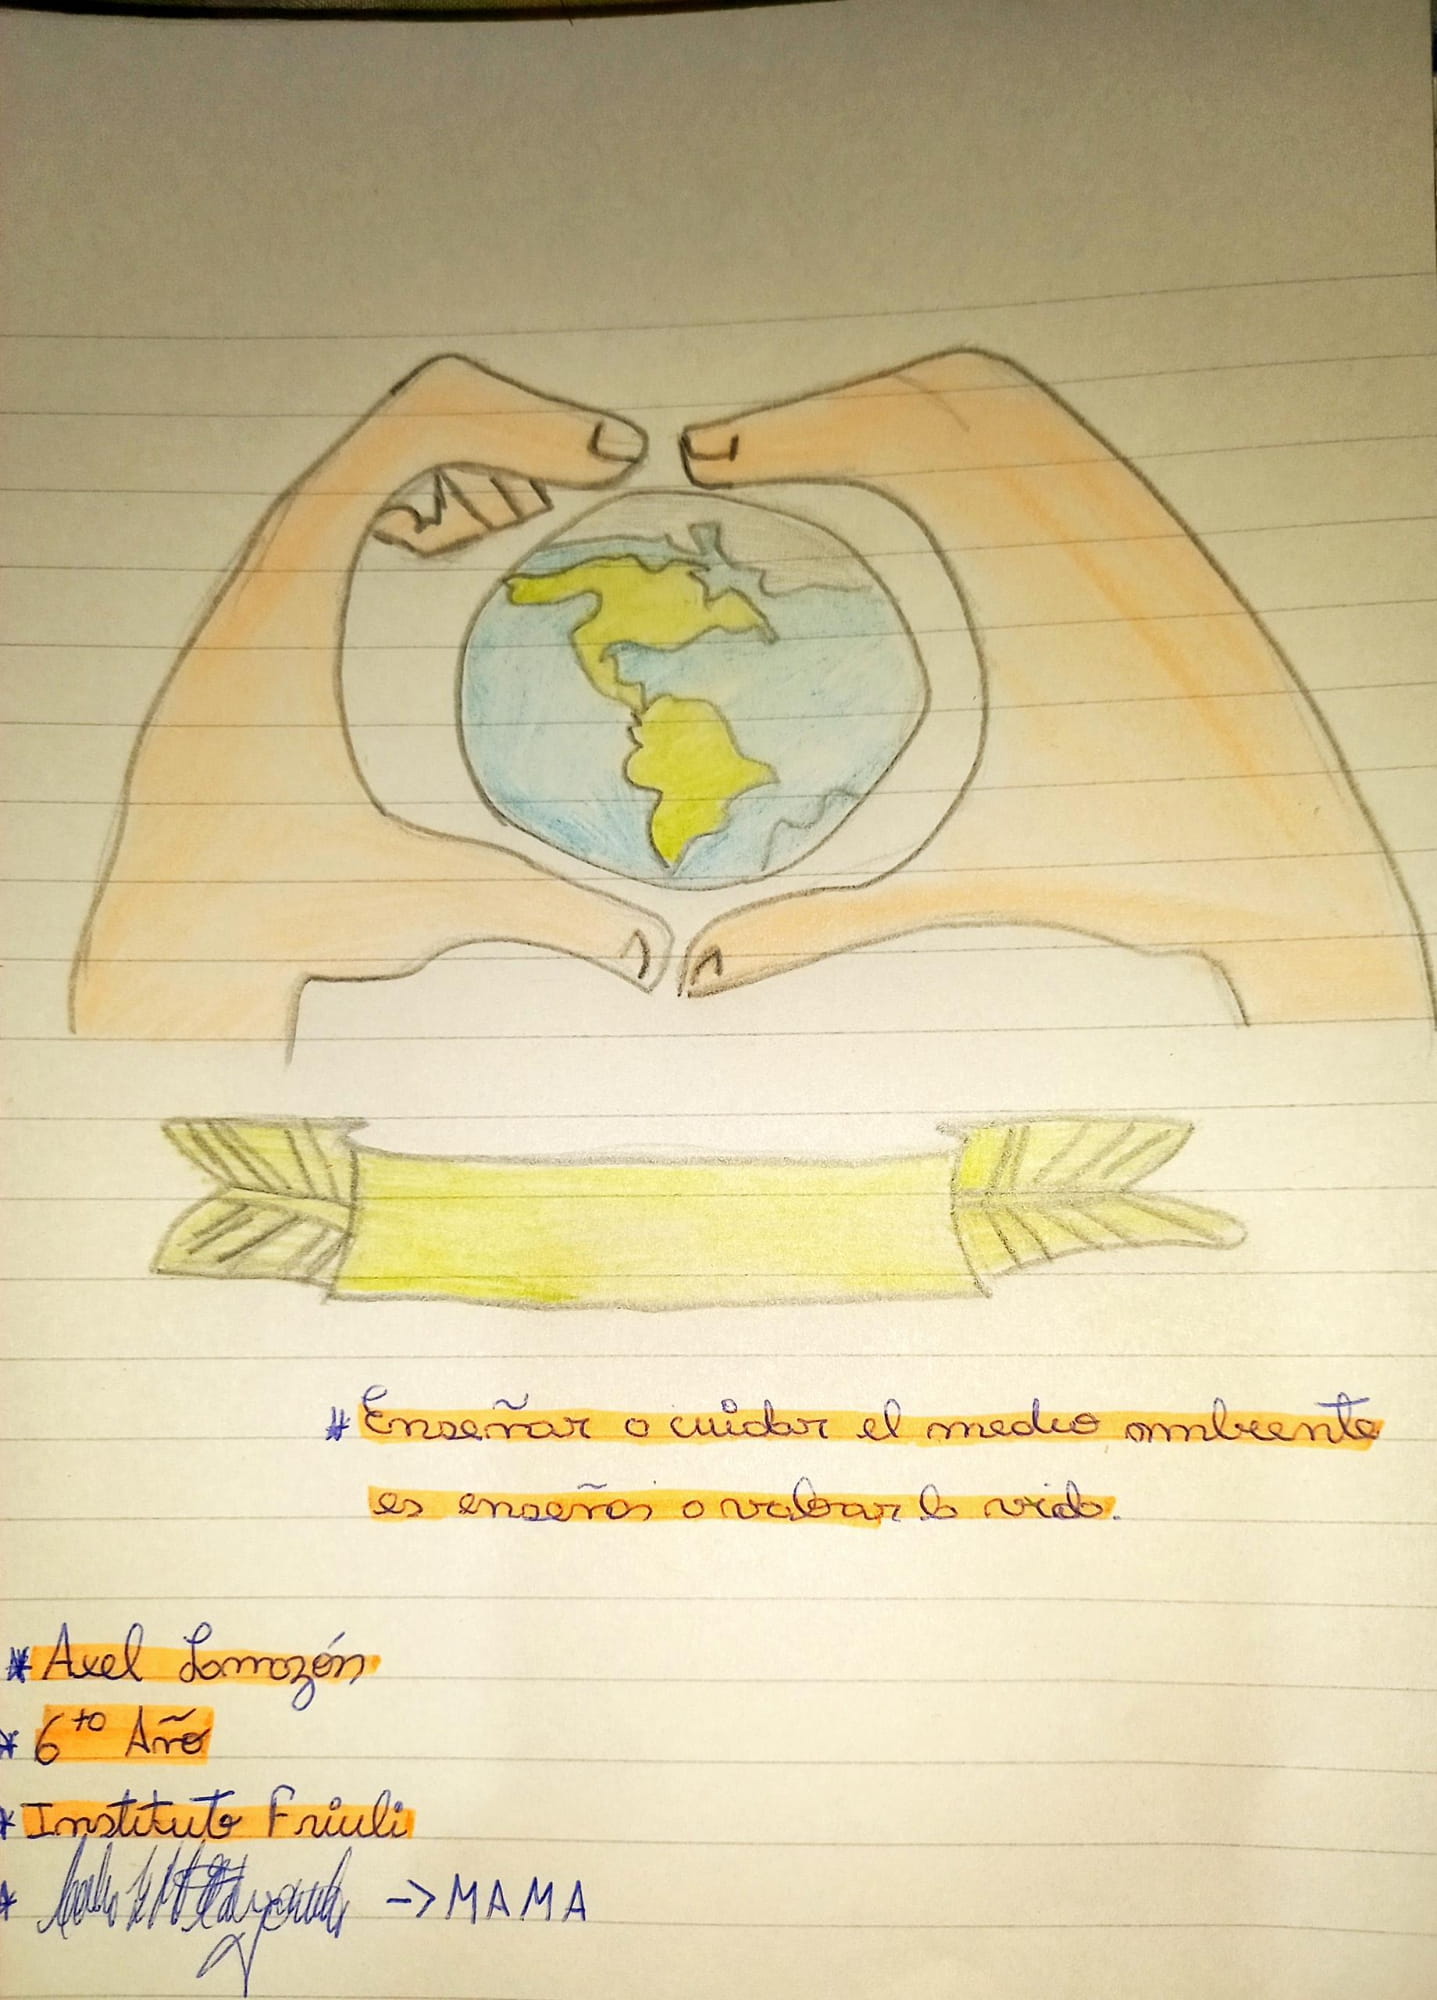 * Enseñar a cuidar el medio ambiente
es enseñar a valorar la vida.
* Axel Lamazón
* 6to Año
* Instituto Friuli
* -> MAMA